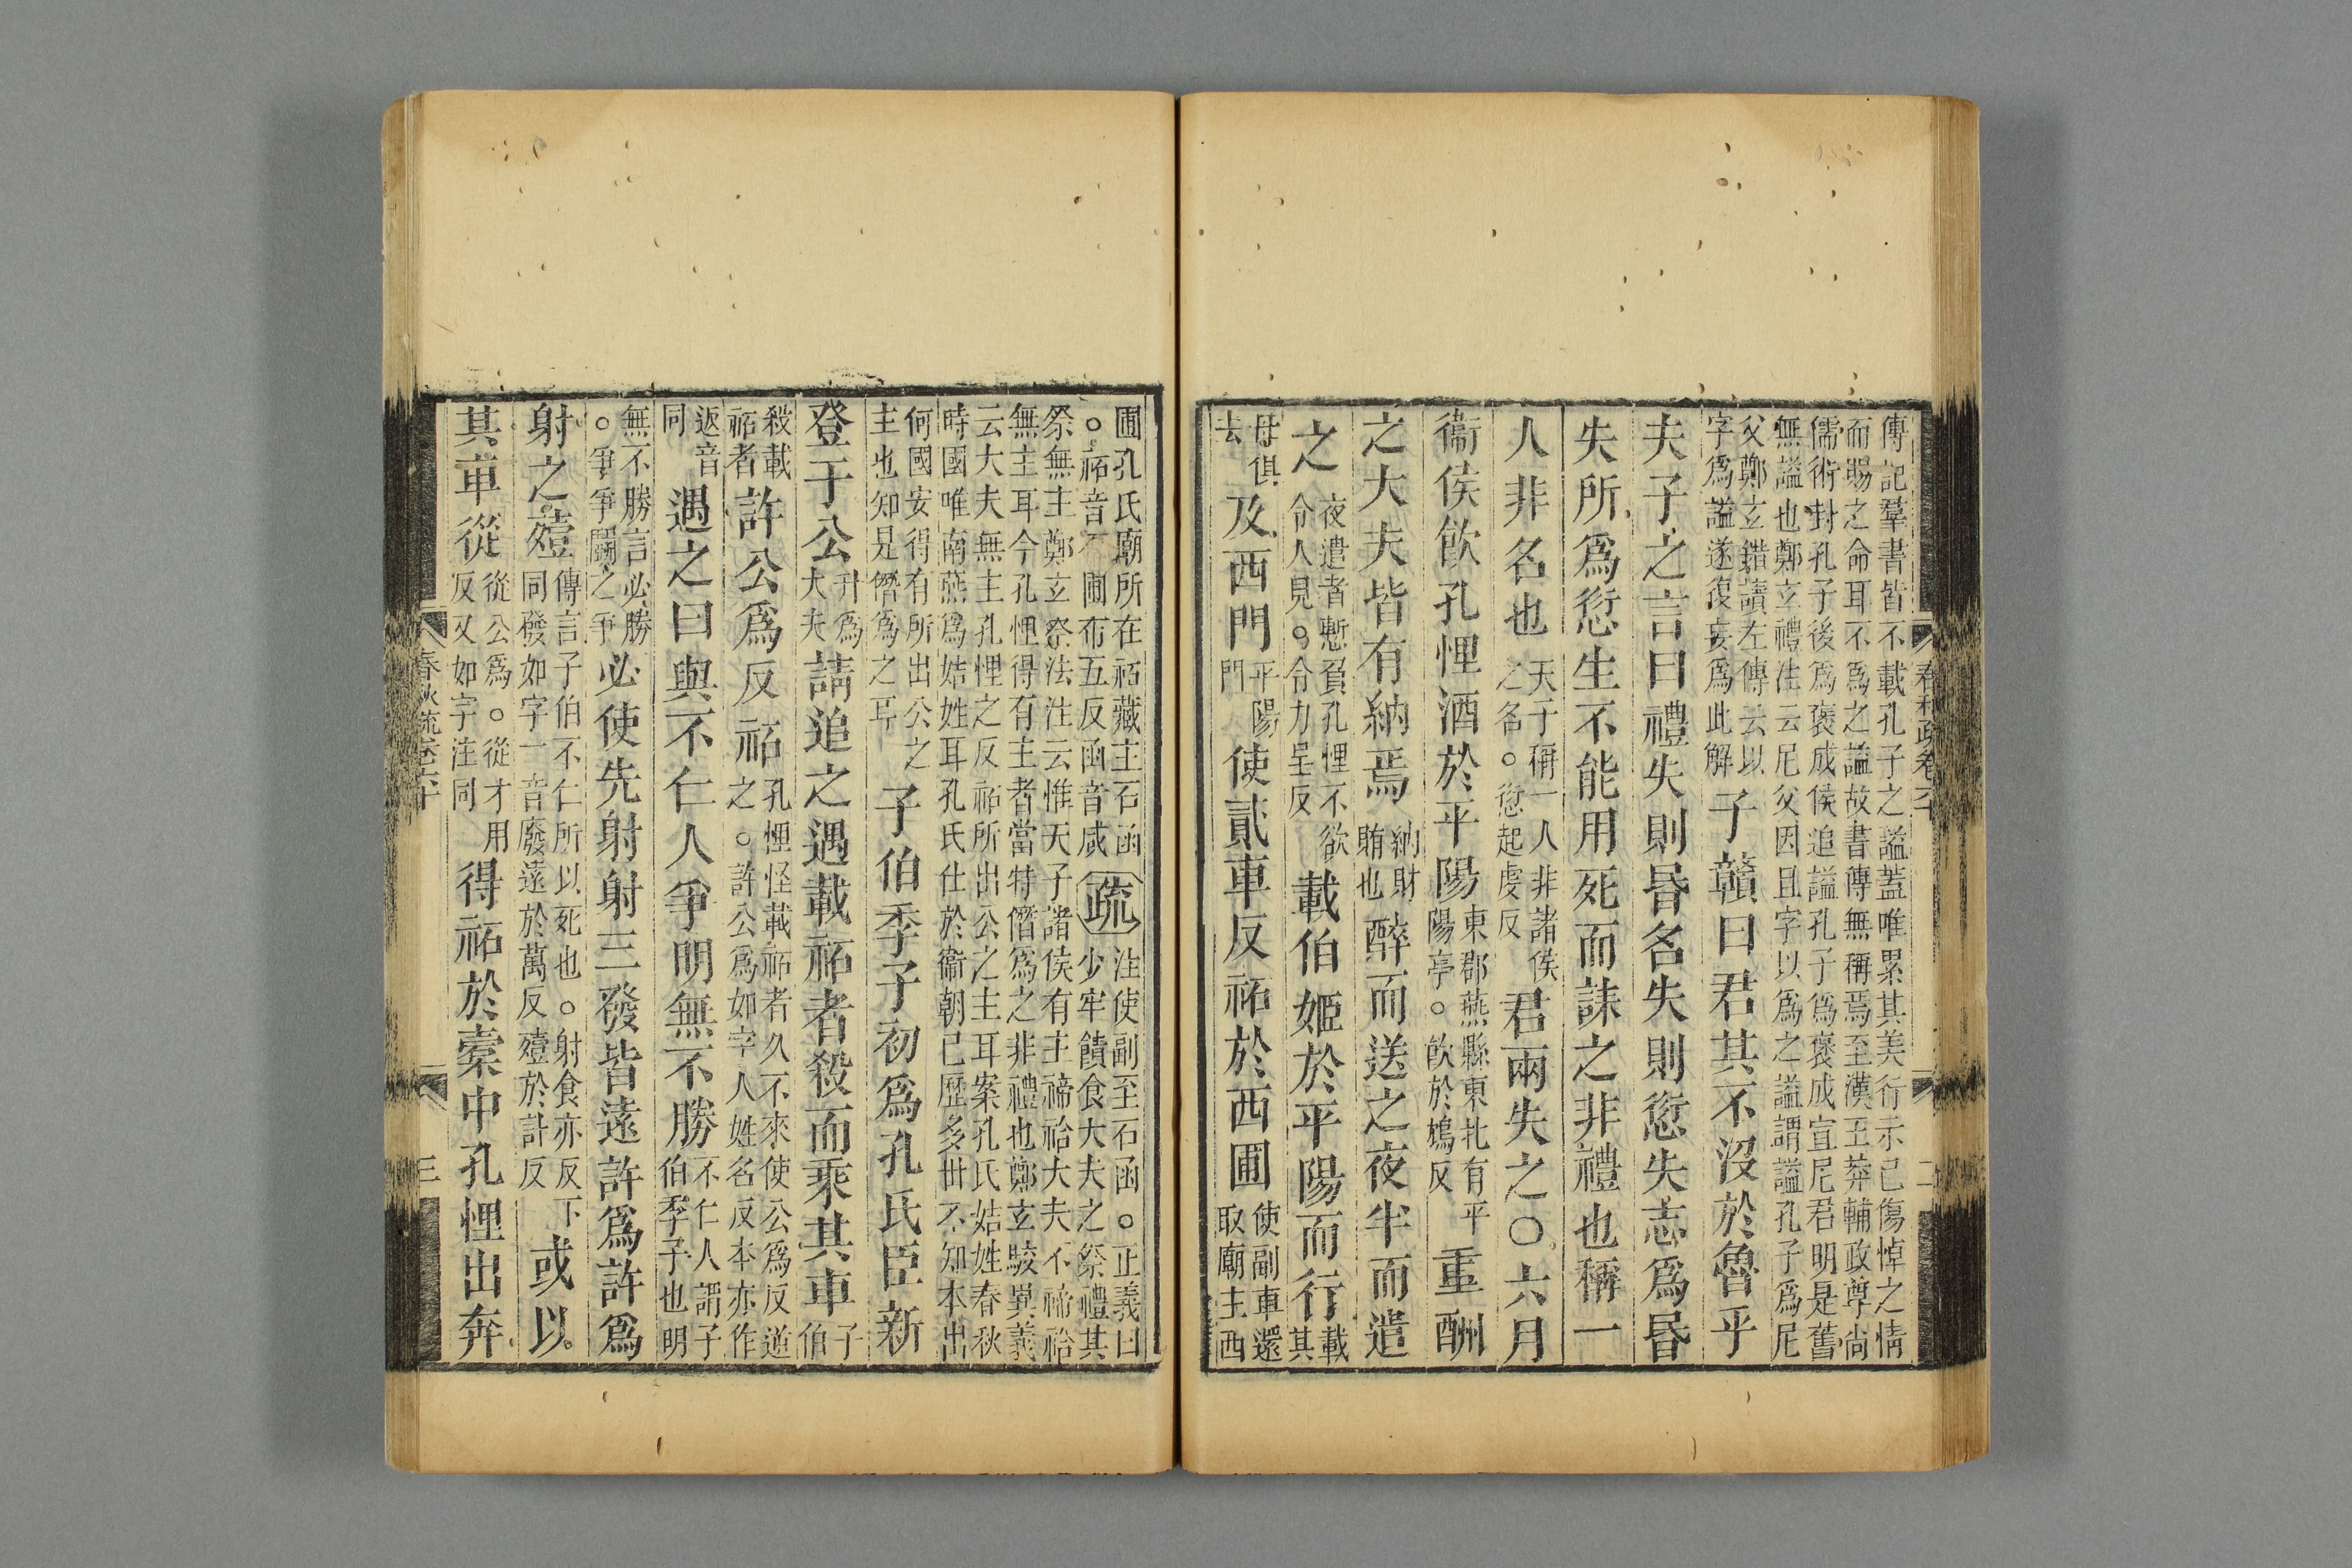 春秋疏卷六十 二
傳記羣書皆不載孔子之謚蓋唯累其美行示已傷悼之情
而賜之命耳不爲之謚故書傳無稱焉至漢王莽輔政尊尚
儒術封孔子後爲褒成侯追謚孔子爲褒成宣尼君明是舊
無謚也鄭玄禮注云尼父因且字以爲之謚謂謚孔子爲尼
父鄭玄錯讀左傳云以字爲謚遂復妄爲此解子贛曰君其不沒於魯乎
夫子之言曰禮失則昬名失則愆失志爲昬
失所爲愆生不能用死而誄之非禮也稱一
人非名也天子稱一人非諸侯之名。愆起虔反君兩失之○六月
衞侯飮孔悝酒於平陽東郡燕縣東北有平陽亭。飮於鴆反重酬
之大夫皆有納焉納財賄也醉而送之夜半而遣
之夜遣者慙負孔悝不欲令人見。令力呈反載伯姬於平陽而行載其
母俱去及西門平陽門使貳車反祏於西圃使副車還取廟主西
圃孔氏廟所在祏藏主石函。祏音石圃布五反函音咸疏注使副至石函。正義曰少牢饋食大夫之祭禮其
祭無主鄭玄祭法注云惟天子諸侯有主禘祫大夫不禘祫
無主耳今孔悝得有主者當特僭爲之非禮也鄭玄駮異義
云大夫無主孔悝之反祏所出公之主耳案孔氏姞姓春秋
時國唯南燕爲姞姓耳孔氏仕於衞朝已歷多世不知本出
何國安得有所出公之主也知是僭爲之耳子伯季子初爲孔氏臣新
登于公升爲大夫請追之遇載祏者殺而乘其車子伯
殺載祏者許公爲反祏孔悝怪載祏者久不來使公爲反逆之。許公爲如字人姓名反本亦作
返音同遇之曰與不仁人爭明無不勝不仁人謂子伯季子也明
無不勝言必勝。爭爭鬭之爭必使先射射三發皆遠許爲許爲
射之殪傳言子伯不仁所以死也。射食亦反下同發如字一音廢遠於萬反殪於計反或以
其車從從公爲。從才用反又如字注同得祏於橐中孔悝出奔
春秋疏卷六十 三